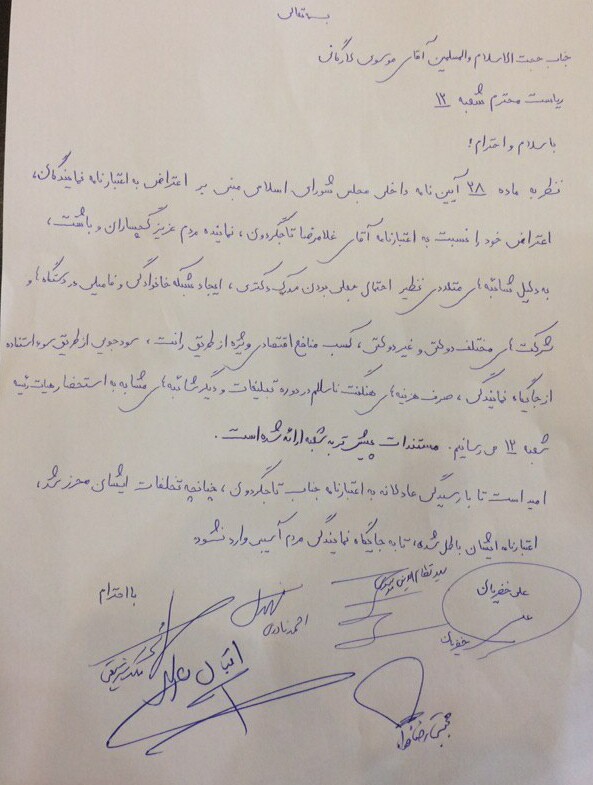 بسمه تعالی
جناب حجت الاسلام والمسلمین آقای موسوی لارگانی
ریاست محترم شعبه ۱۲
با سلام و احترام!
نظر به ماده ۲۸ آیین نامه داخلی مجلس شورای اسلامی مبنی بر اعتراض به اعتبارنامه نمایندگان،
اعتراض خود را نسبت به اعتبارنامه آقای غلامرضا تاجگردون، نماینده مردم عزیز گچساران و باشت،
به دلیل شائبه های متعددی نظیر احتمال جعلی بودن مدرک دکتری، ایجاد شبکه خانوادگی و فامیلی در دستگاه ها و
شرکت های مختلف دولتی و غیر دولتی، کسب منافع اقتصادی ویژه از طریق رانت، سودجویی از طریق سوء استفاده
از جایگاه نمایندگی، صرف هزینه های هنگفت ناسالم در دوره تبلیغات و دیگر شائبه های مشابه به استحضار هیات رئیسه
شعبه ۱۲ می رسانیم. مستندات پیش تر به شعبه ارائه شده است.
امید است تا با رسیدگی عادلانه به اعتبارنامه جناب تاجگردون، چنانچه تخلفات ایشان محرز شد،
اعتبارنامه ایشان باطل شده، تا به جایگاه نمایندگی مردم آسیبی وارد نشود
با احترام
علی خضریان
علی
خضریان
سید نظام الدین موسوی
احمد نادری
مجتبی رضاخواه